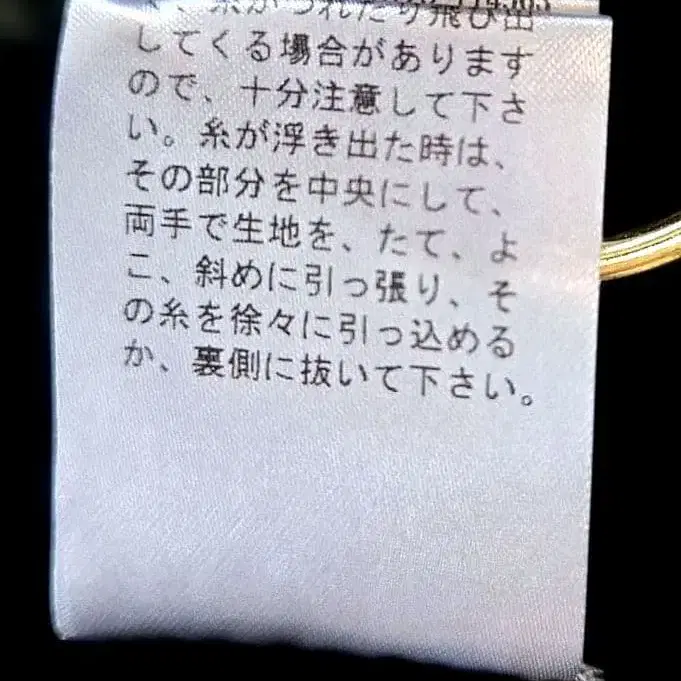 、糸がつれたり飛び出
してくる場合があります
ので、十分注意して下さ
い。糸が浮き出た時は、
その部分を中央にして、
両手で生地を、たて、よ
こ、斜めに引っ張り、そ
の糸を徐々に引っ込める
か、裏側に抜いて下さい。